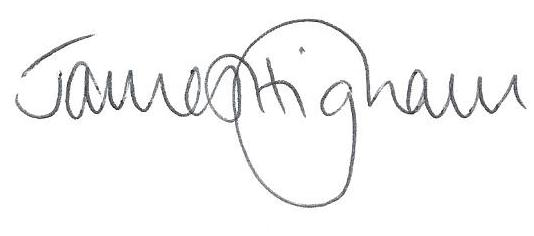 James Higham